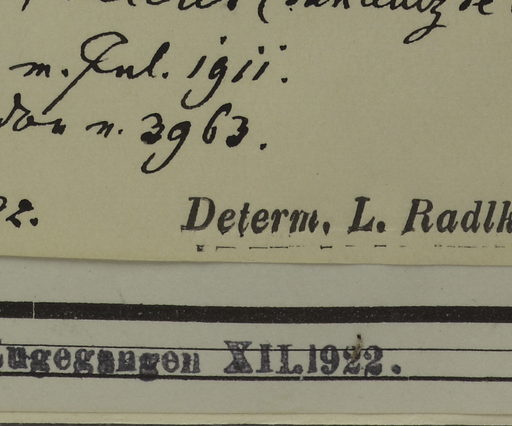 m. Jul. 1911.
n. 3963.
Determ. L. Radlk
Zugegangen XII.1922.